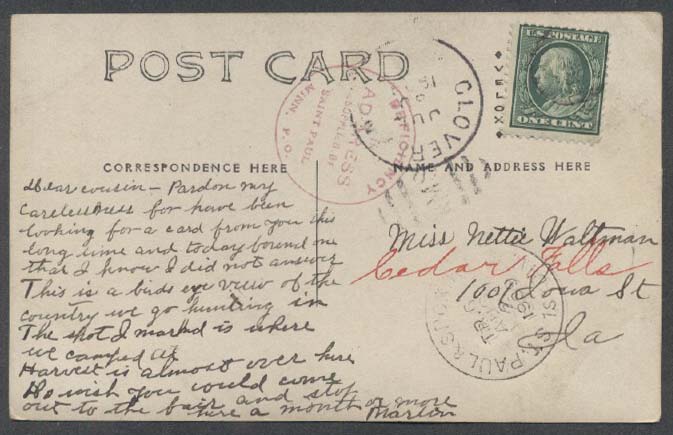 POST CARD
U.S. POSTAGE
ONE CENT
CLOVER
DEFICIENCY
ADDRESS
SUPPLIED BY
SAINT PAUL
MINN. P.O.
CORRESPONDENCE HERE
NAME AND ADDRESS HERE
AZO
Dear cousin - Pardon my
carelessness for have been
looking for a card from you this
long time and today found one
that I know I did not answer
This is a birds eye view of the
country we go hunting in
The spot I marked is where
we camped at
Harvest is almost over here
Do wish you would come
out to the fair and stop
here a month or more
Marlon
Miss Nettie Waltman
Cedar Falls
1001 Iowa St
Ia
ST. PAUL